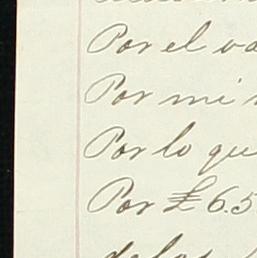 Por el va
Por mi
Por lo que
Por £65
de los